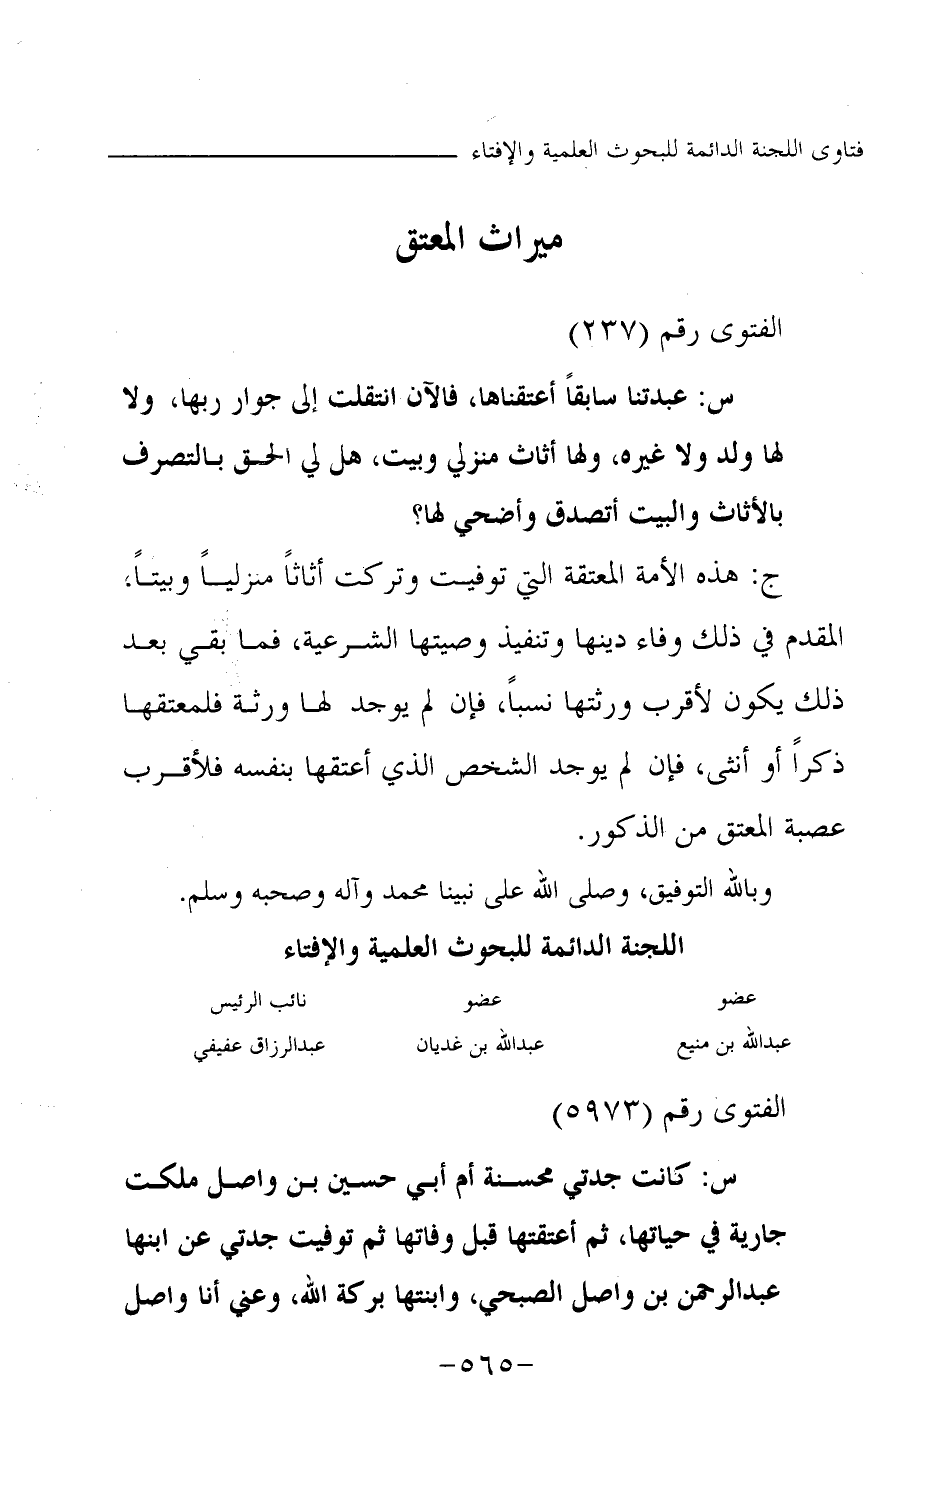 فتاوى اللجنة الدائمة للبحوث العلمية والإفتاء
ميراث المعتق
الفتوى رقم (٢٣٧)
س: عبدتنا سابقاً أعتقناها، فالآن انتقلت إلى جوار ربها، ولا
لها ولد ولا غيره، ولها أثاث منزلي وبيت، هل لي الحق بالتصرف
بالأثاث والبيت أتصدق وأضحي لها؟
ج: هذه الأمة المعتقة التي توفيت وتركت أثاثاً منزلياً وبيتاً،
المقدم في ذلك وفاء دينها وتنفيذ وصيتها الشرعية، فما بقي بعد
ذلك يكون لأقرب ورثتها نسباً، فإن لم يوجد لها ورثة فلمعتقها
ذكراً أو أنثى، فإن لم يوجد الشخص الذي أعتقها بنفسه فلأقرب
عصبة المعتق من الذكور.
وبالله التوفيق، وصلى الله على نبينا محمد وآله وصحبه وسلم.
اللجنة الدائمة للبحوث العلمية والإفتاء
عضو عضو نائب الرئيس
عبدالله بن منيع عبدالله بن غديان عبدالرزاق عفيفي
الفتوى رقم (٥٩٧٣)
س: كانت جدتي محسنة أم أبي حسين بن واصل ملكت
جارية في حياتها، ثم أعتقتها قبل وفاتها ثم توفيت جدتي عن ابنها
عبدالرحمن بن واصل الصبحي، وابنتها بركة الله، وعني أنا واصل
-٥٦٥-